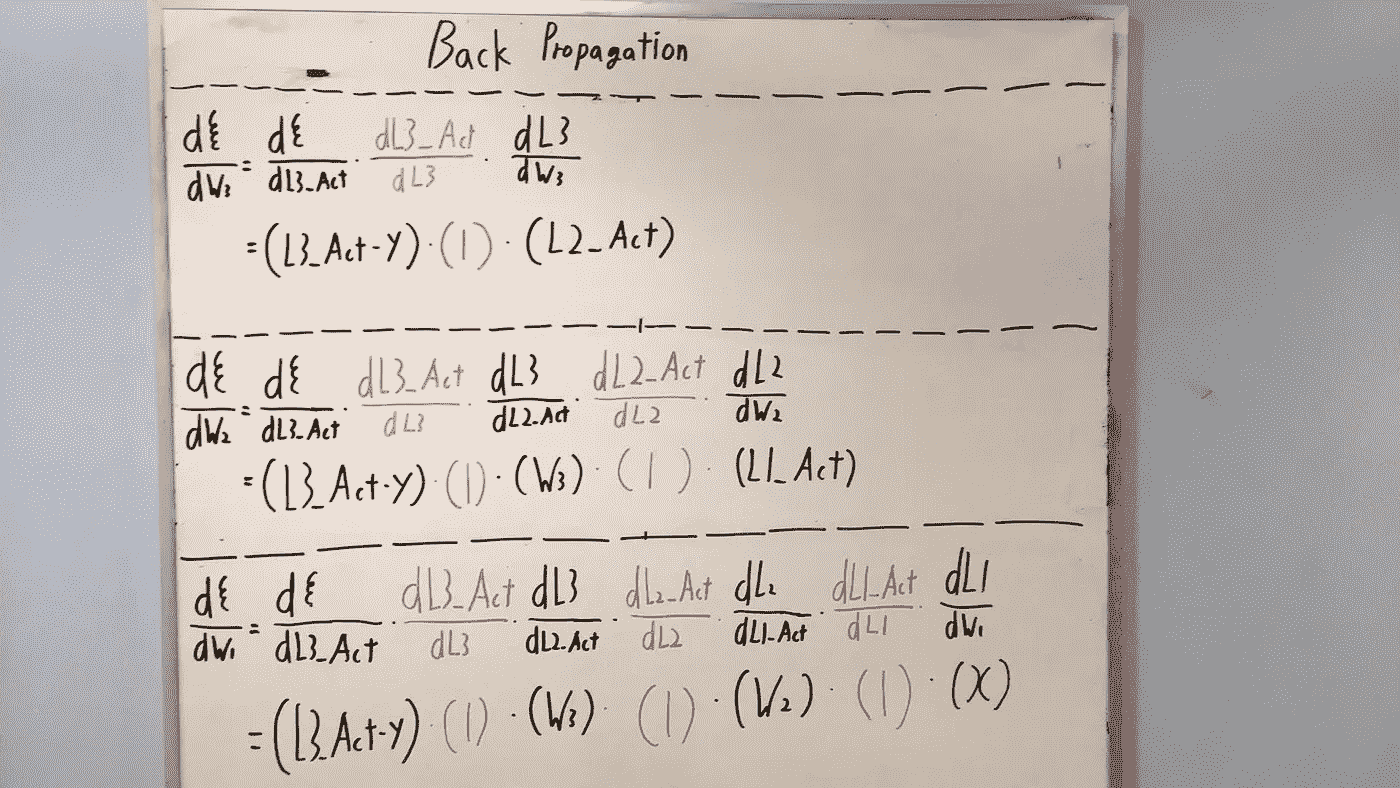 Back Propagation
dξ/dW₃ = dξ/dL3_Act · dL3_Act/dL3 · dL3/dW₃
= (L3_Act - Y) · (1) · (L2_Act)
dξ/dW₂ = dξ/dL3_Act · dL3_Act/dL3 · dL3/dL2_Act · dL2_Act/dL2 · dL2/dW₂
= (L3_Act - Y) · (1) · (W₃) · (1) · (L1_Act)
dξ/dW₁ = dξ/dL3_Act · dL3_Act/dL3 · dL3/dL2_Act · dL₂_Act/dL2 · dL₂/dL1_Act · dL1_Act/dL1 · dL1/dW₁
= (L3_Act - Y) · (1) · (W₃) · (1) · (W₂) · (1) · (X)